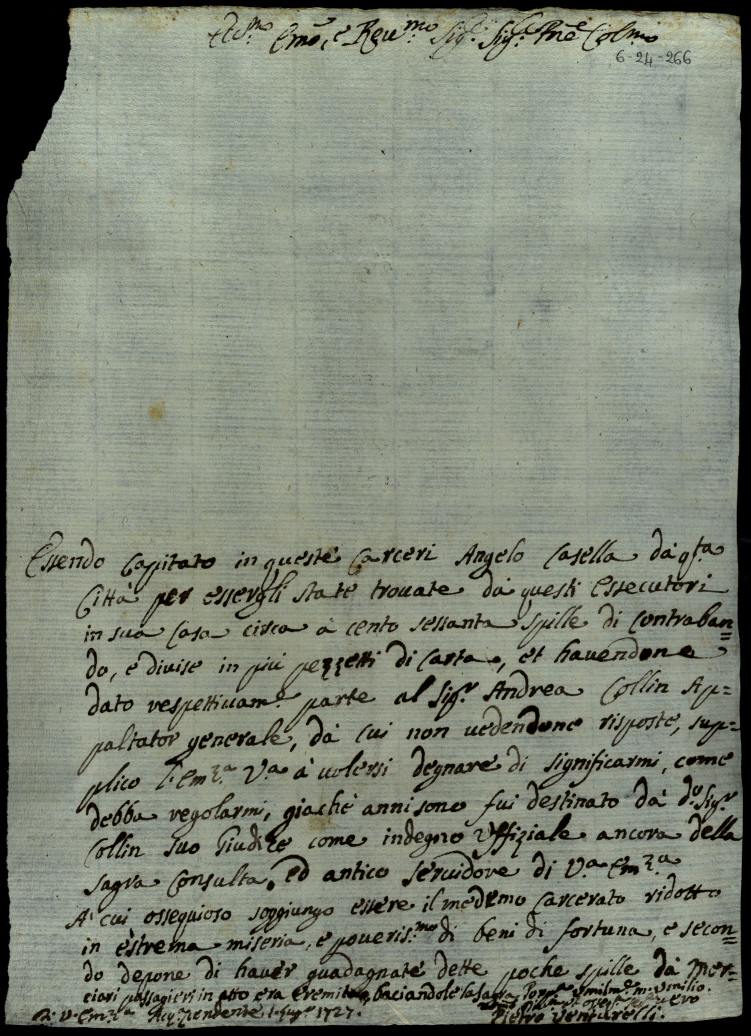 Emo, e Reu.mo Sig.r Sig.r Prõe Col.mo
6-24-266
Essendo Capitato in queste Carceri Angelo Casella dà q.sta
Città per essergli state trouate dà questi Essecutori
in sua Casa circa à cento sessanta spille di Contraban=
do, e diuise in più pezzetti di Carta, et hauendone
dato respettiuam.e parte al Sig.r Andrea Collin Ap=
paltator generale, dà cui non uedendone risposte, sup=
plico l'Em.za V.a à uolersi degnare di significarmi, come
debba regolarmi, giachè anni sono fui destinato dà d.o Sig.r
Collin suo Giudice come indegno Vffiziale ancora della
Sagra Consulta, ed antico seruidore di V.a Em.za
A' cui ossequioso soggiungo essere il medemo Carcerato ridotto
in estrema miseria, e poueris.mo di beni di fortuna, e secon=
do depone di hauer guadagnate dette poche spille dà mer=
ciari passagieri in atto era Eremita, baciandole la Sagra Porp.a
D. V. Em.za 1727.
Pietro Venturelli